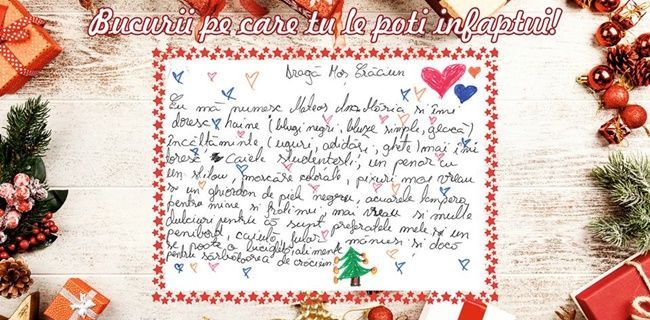 Bucurii pe care tu le poti infaptui!
Dragă Moș Crăciun
Eu mă numesc Mateos Ana Maria si îmi
doresc haine (blugi negri, bluze simple, geacă)
încălțăminte (uguri, adidași, ghete) mai îmi
doresc caiete studentesti, un penar cu
un stilou, creioane colorate, pixuri mai vreau
si un ghiozdan de piele negru, acuarele tempera
pentru mine si fratii mei, mai vreau si multe
dulciuri pentru că sunt preferatele mele si un
penibord, cu fular mănusi si dacă
se poate a alimente
pentru sărbătoarea de crăciun